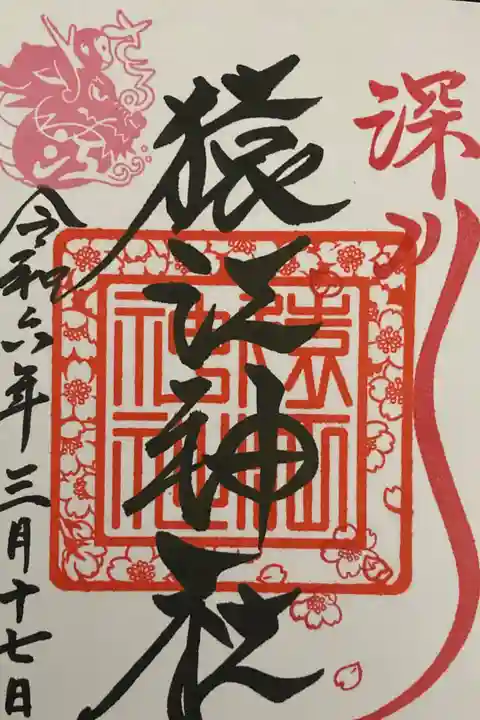 深川
猿江神社
猿江神社
令和六年三月十七日